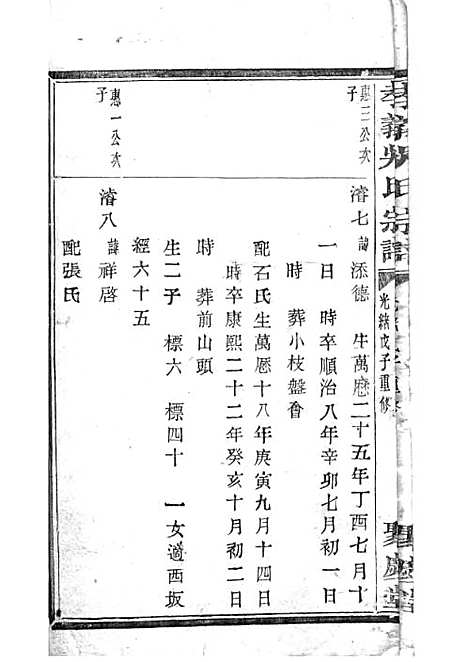 孝義吳氏宗譜
光緒戊子重修
聚慶堂
惠三公次
子
濬七諱添德 生萬曆二十五年丁酉七月十
一日 時卒順治八年辛卯七月初一日
時 葬小枝盤會
配石氏生萬曆十八年庚寅九月十四日
時卒康熙二十二年癸亥十月初二日
時 葬前山頭
生二子 標六 標四十 一女適西坂
經六十五
惠一公次
子
濬八諱祥啓
配張氏